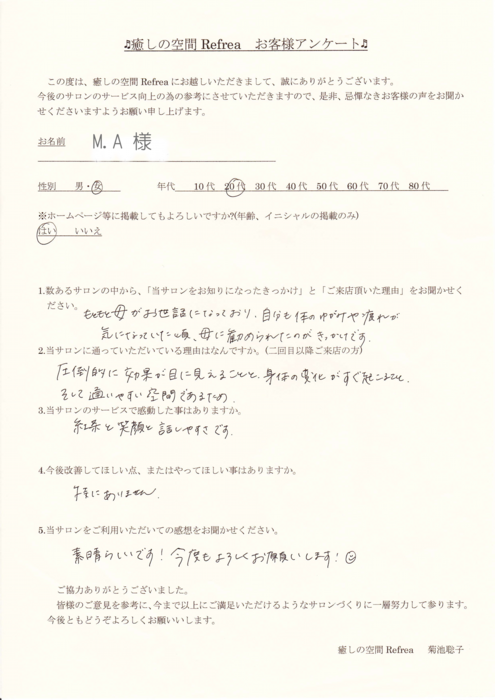 ♬癒しの空間 Refrea　お客様アンケート♬
この度は、癒しの空間 Refrea にお越しいただきまして、誠にありがとうございます。
今後のサロンのサービス向上の為の参考にさせていただきますので、是非、忌憚なきお客様の声をお聞か
せくださいますようお願い申し上げます。
お名前　M.A 様
性別　男・女　年代　10代　20代　30代　40代　50代　60代　70代　80代
※ホームページ等に掲載してもよろしいですか?(年齢、イニシャルの掲載のみ)
はい　いいえ
1.数あるサロンの中から、「当サロンをお知りになったきっかけ」と「ご来店頂いた理由」をお聞かせく
ださい。
もともと母がお世話になっており、自分も体のゆがみや疲れが
気になっていた頃、母に勧められたのがきっかけです。
2.当サロンに通っていただいている理由はなんですか。(二回目以降ご来店の方)
圧倒的に効果が目に見えることと、身体の変化がすぐ起こること、
そして通いやすい空間であるため。
3.当サロンのサービスで感動した事はありますか。
紅茶と笑顔と話しやすさです。
4.今後改善してほしい点、またはやってほしい事はありますか。
特にありません。
5.当サロンをご利用いただいての感想をお聞かせください。
素晴らしいです！今度もよろしくお願いします！☺
ご協力ありがとうございました。
皆様のご意見を参考に、今まで以上にご満足いただけるようなサロンづくりに一層努力して参ります。
今後ともどうぞよろしくお願いいします。
癒しの空間 Refrea　菊池聡子